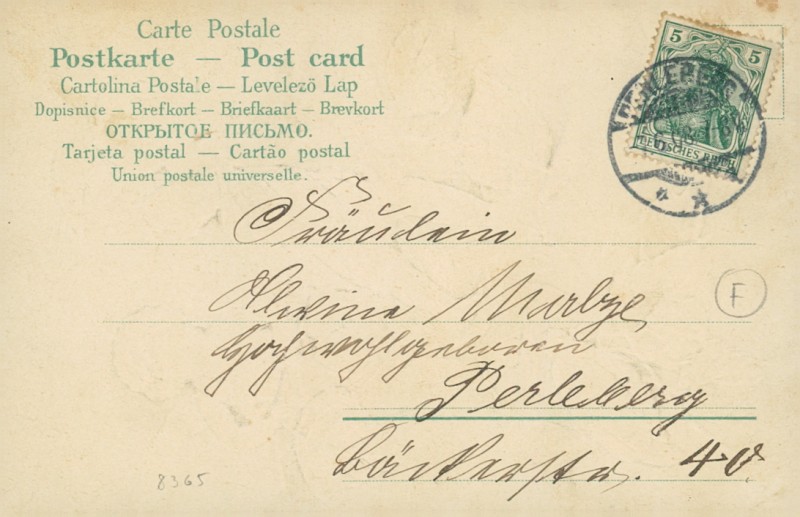 Carte Postale
Postkarte — Post card
Cartolina Postale — Levelező Lap
Dopisnice — Brefkort — Briefkaart — Brevkort
ОТКРЫТОЕ ПИСЬМО.
Tarjeta postal — Cartão postal
Union postale universelle.
5 5
DEUTSCHES REICH
PERLEBERG
Fräulein
Alwine
Hochwohlgeboren
Perleberg
Bäckerstr. 40.
F
8365